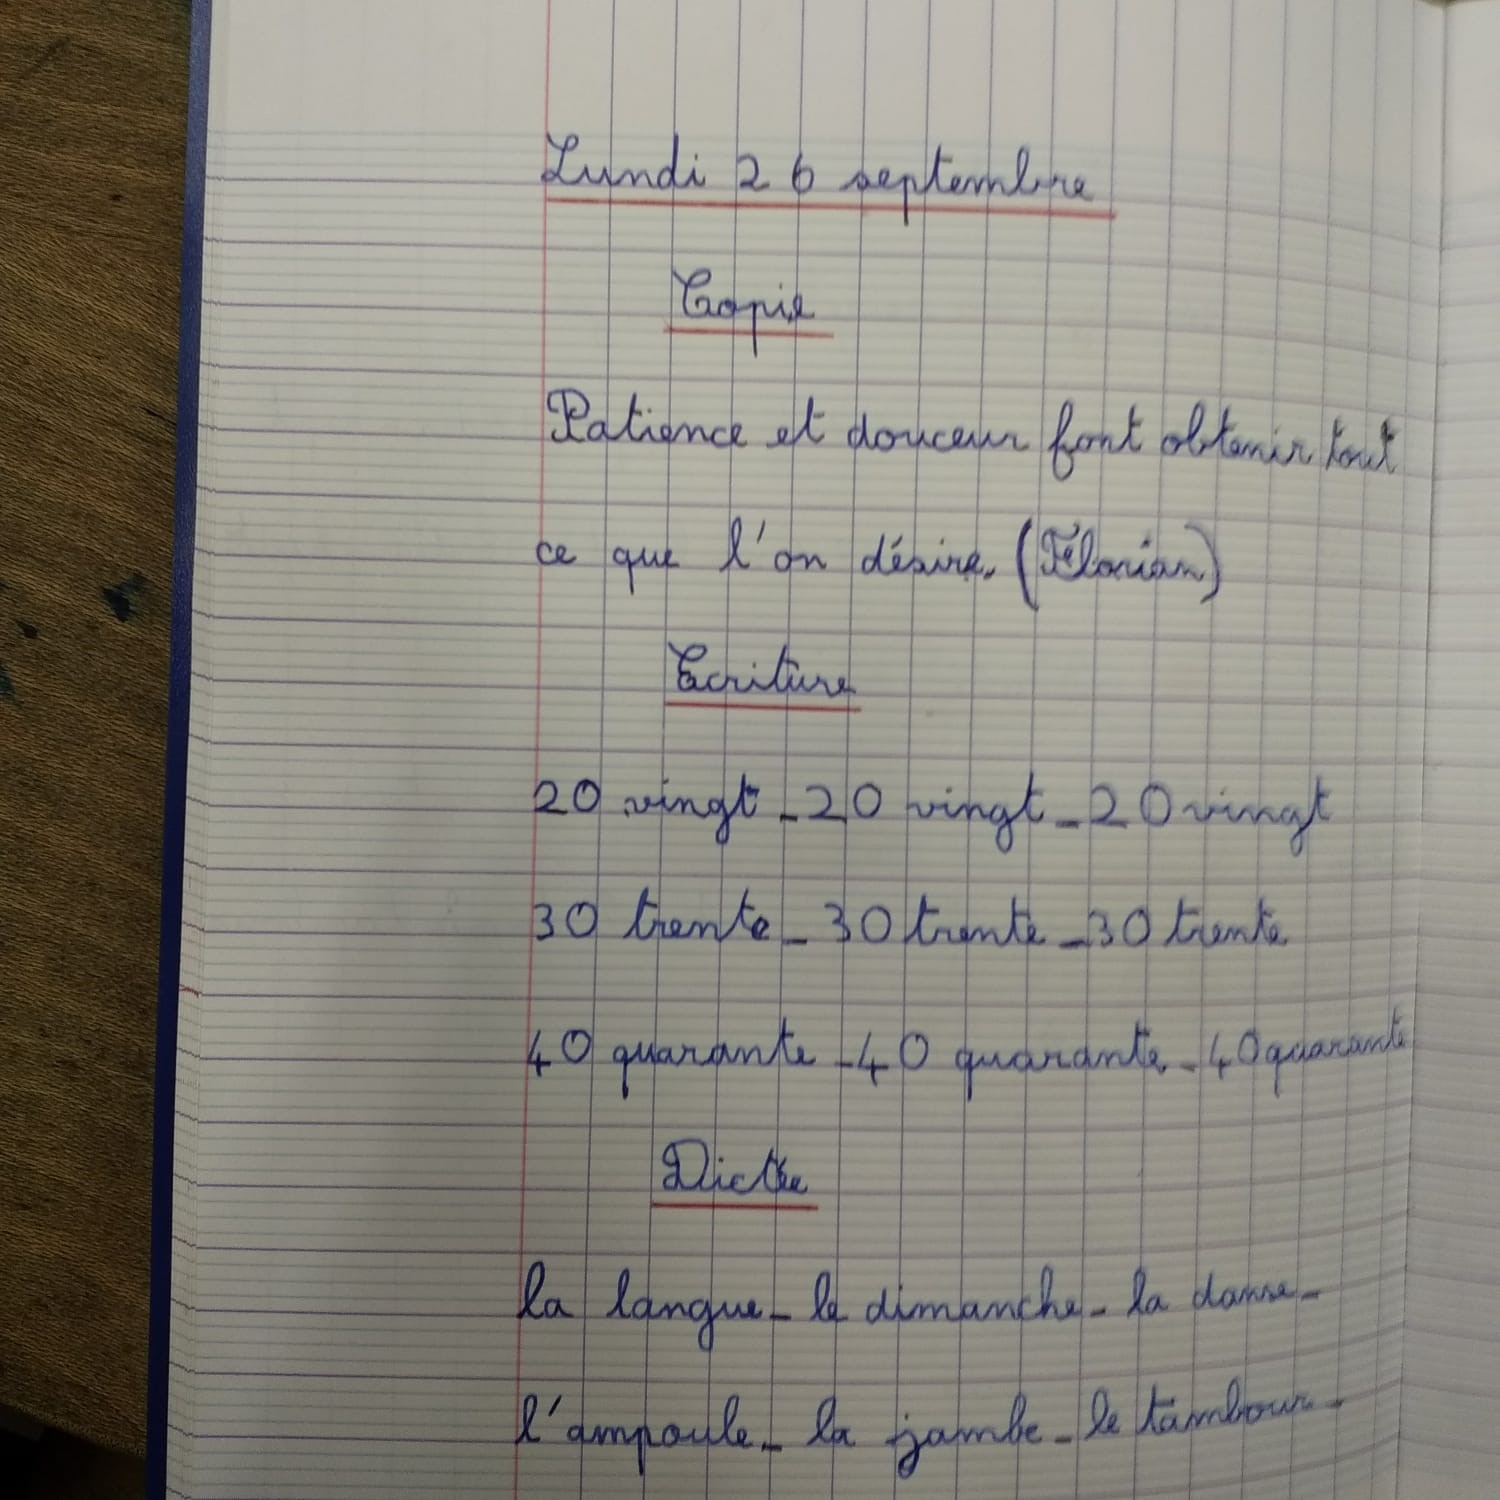 Lundi 26 septembre
Copie
Patience et douceur font obtenir tout
ce que l'on désire. (Florian)
Ecriture
20 vingt - 20 vingt - 20 vingt
30 trente - 30 trente - 30 trente
40 quarante - 40 quarante - 40 quarante
Dictée
la langue - le dimanche - la danse -
l'ampoule - la jambe - le tambour -